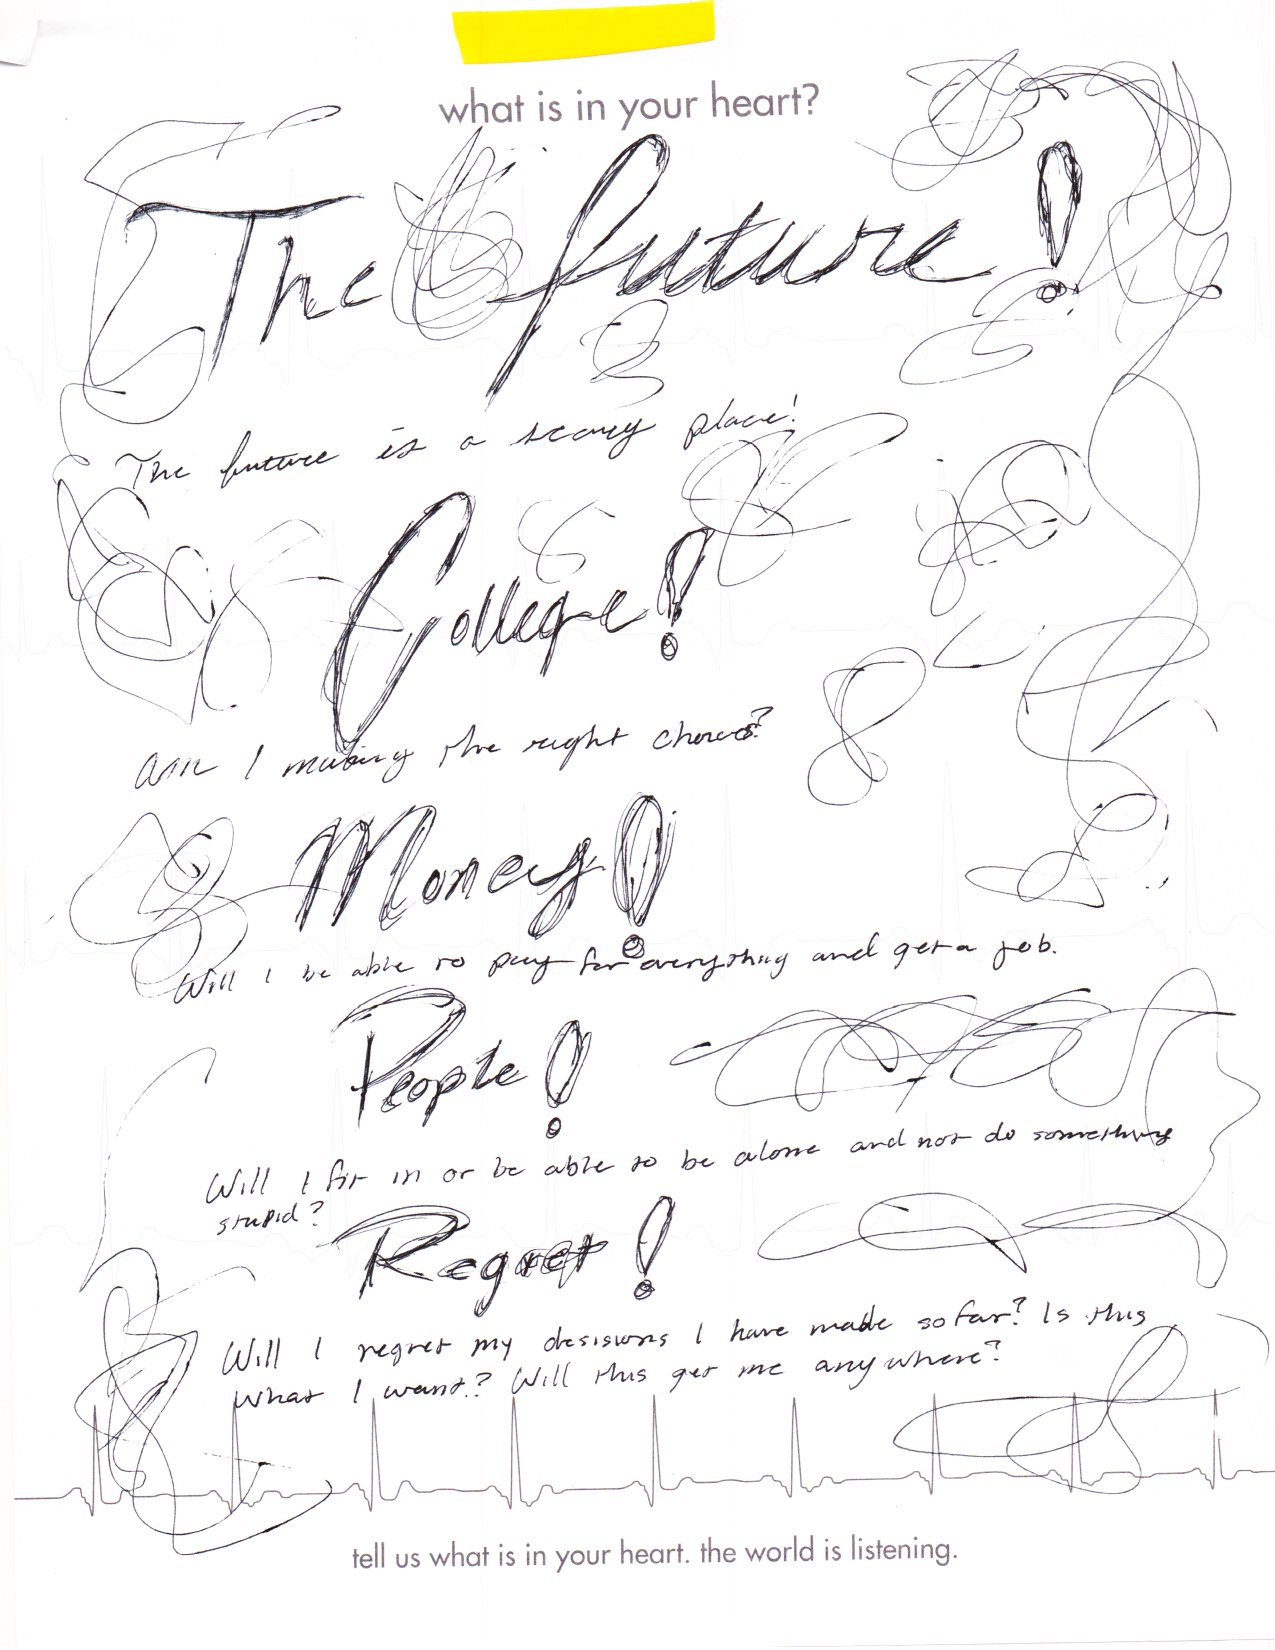 what is in your heart?
The future!
The future is a scary place!
College!
Am I making the right choices?
Money!
Will I be able to pay for everything and get a job.
People!
Will I fit in or be able to be alone and not do something
stupid?
Regret!
Will I regret my desisions I have made so far? Is this
what I want? Will this get me anywhere?
tell us what is in your heart. the world is listening.